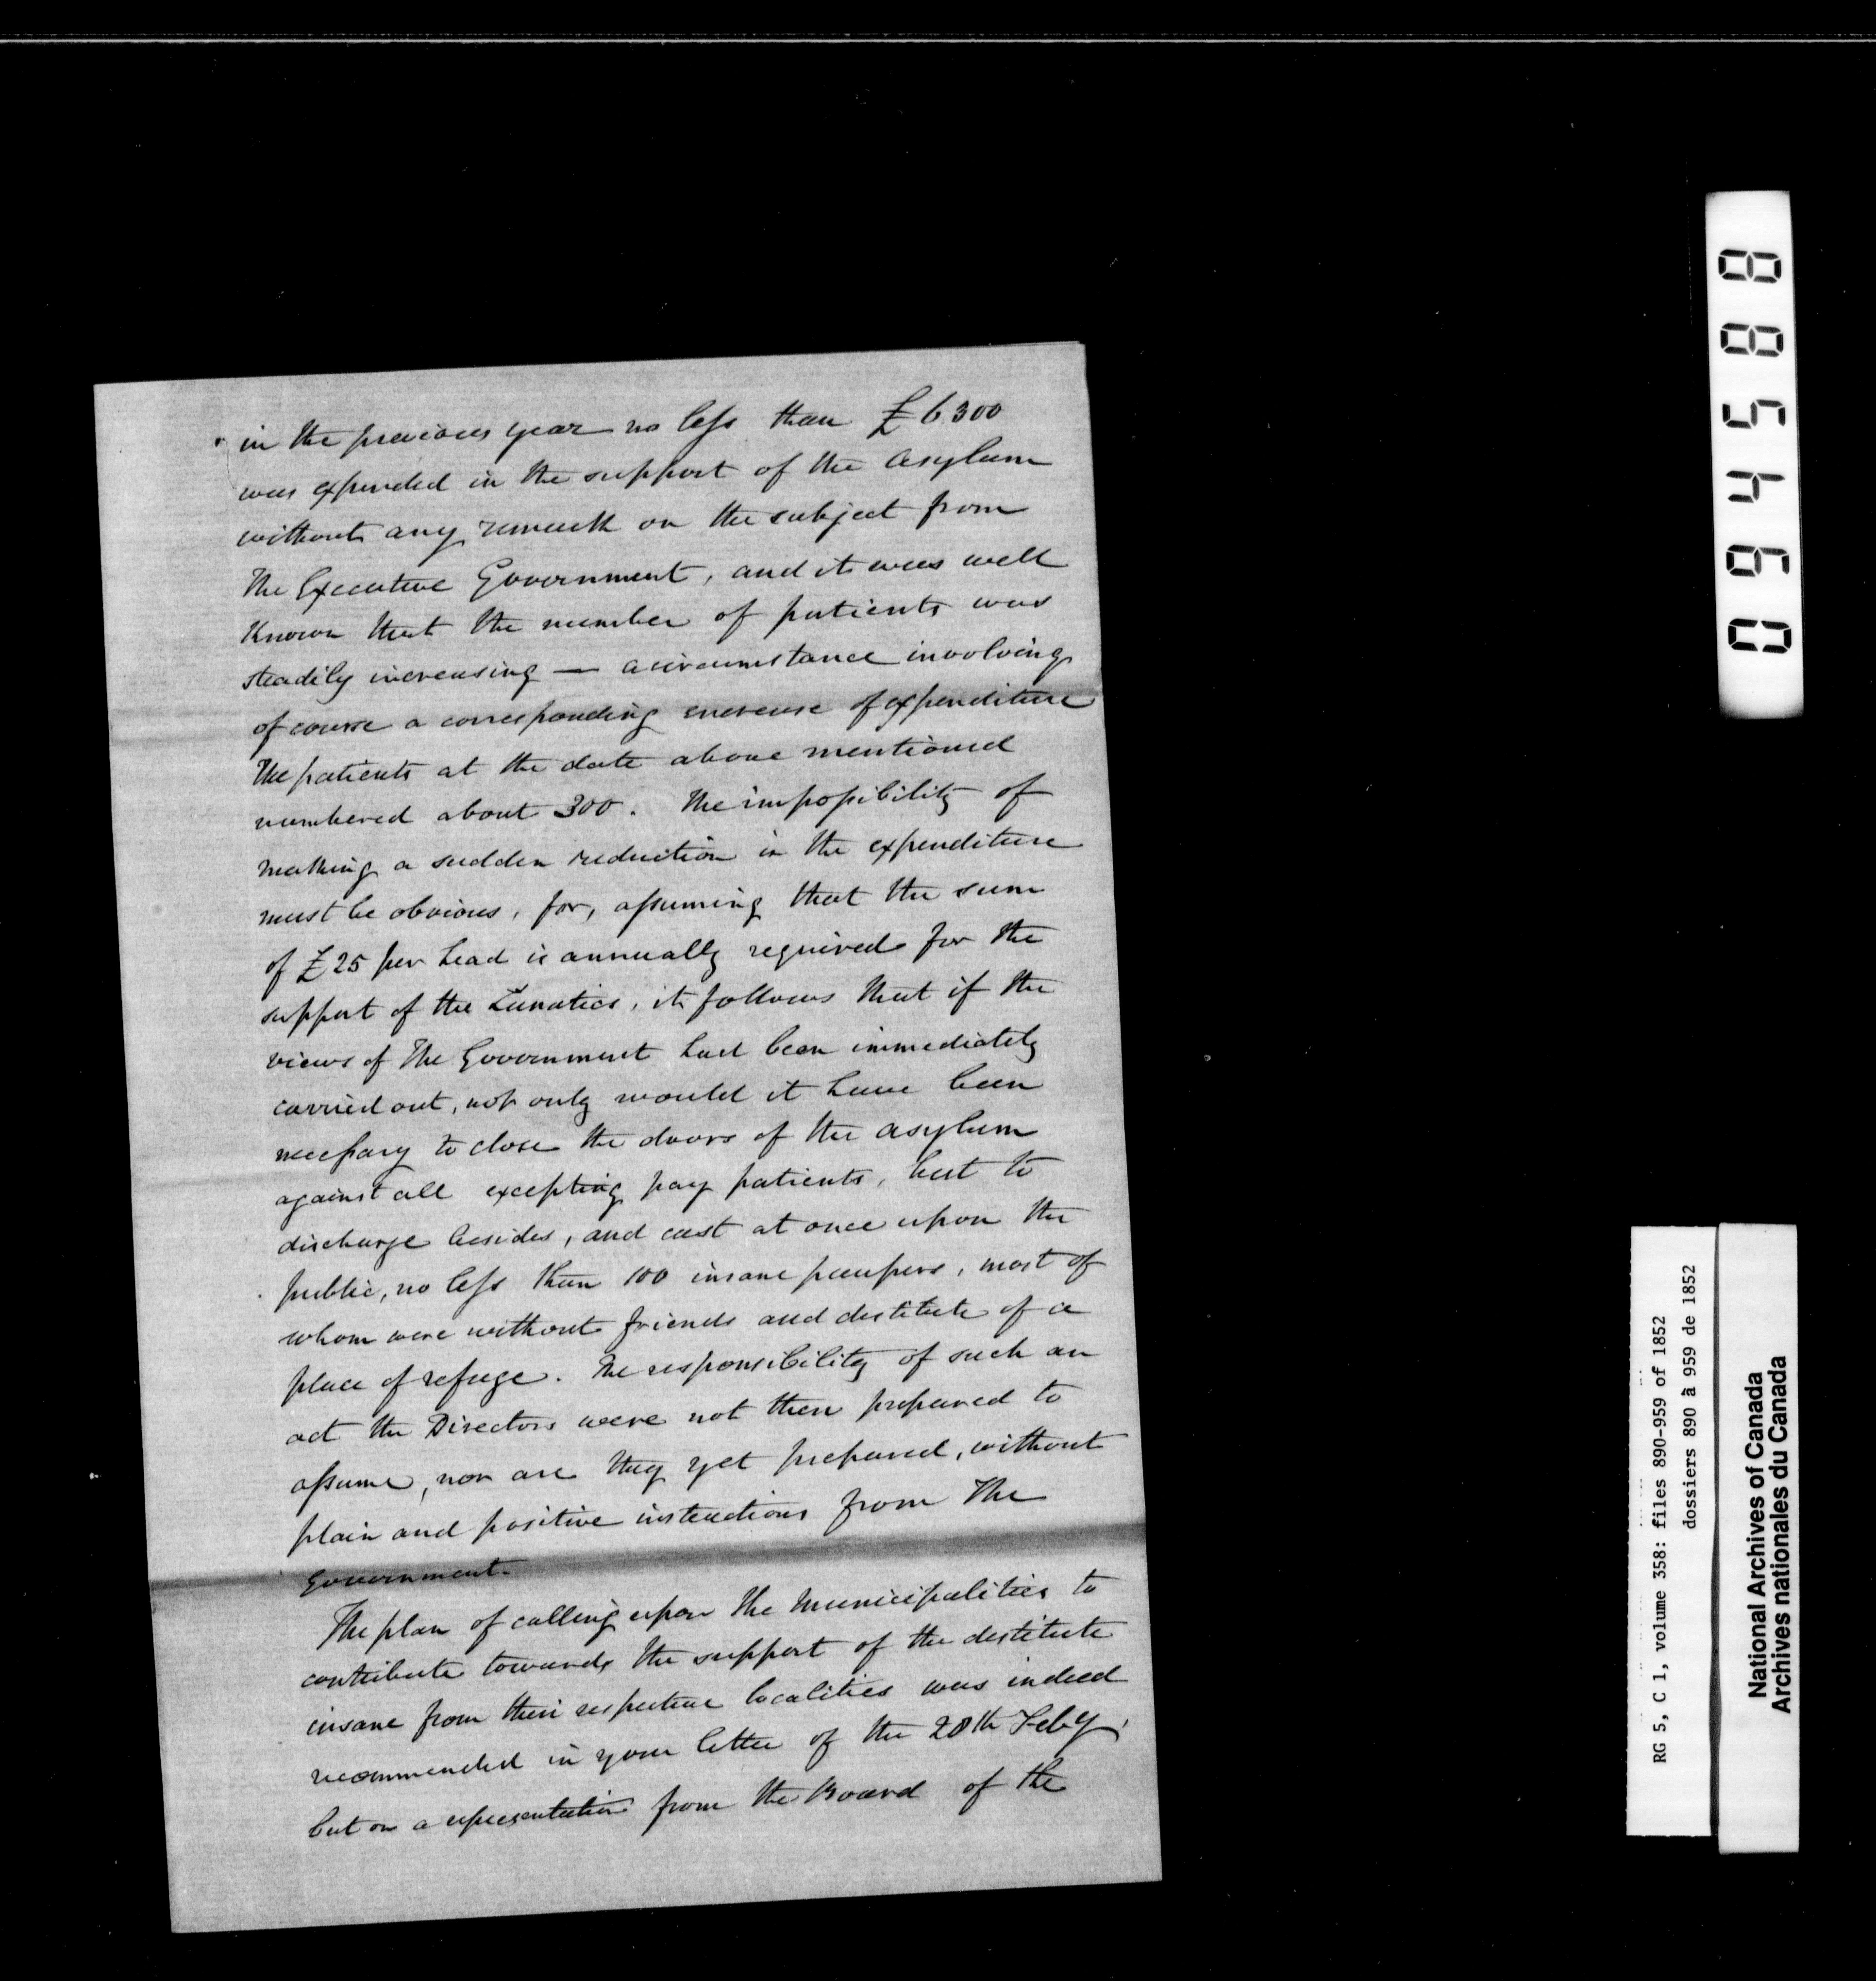 in the previous year no less than £6300
was expended in the support of the Asylum
without any remark on the subject from
The Executive Government, and it was well
Known that the number of patients was
steadily increasing — a circumstance involving
of course a corresponding increase of expenditure
The patients at the date above mentioned
numbered about 300. The impossibility of
making a sudden reduction in the expenditure
must be obvious, for, assuming that the sum
of £25 per head is annually required for the
support of the Lunatics, it follows that if the
views of The Government had been immediately
carried out, not only would it have been
necessary to close the doors of the asylum
against all excepting pay patients, but to
discharge besides, and cast at once upon the
public, no less than 100 insane paupers, most of
whom were without friends and destitute of a
place of refuge. The responsibility of such an
act the Directors were not then prepared to
assume, nor are they yet prepared, without
plain and positive instructions from The
Government.
The plan of calling upon the Municipalities to
contribute towards the support of the destitute
insane from their respective localities was indeed
recommended in your letter of the 28th Feby,
but on a representation from the Board of the
094588
RG 5, C 1, volume 358: files 890-959 of 1852
dossiers 890 à 959 de 1852
National Archives of Canada
Archives nationales du Canada